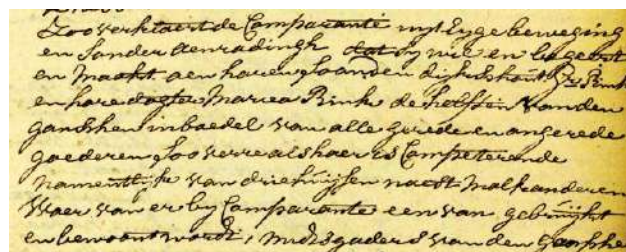 Zoo verklaert de Comparante uyt Eyge beweging
en sonder aenradingh dat sy wil en begeert
en maakt aen haren soon den dijkschout Jzs Pink
en hare dogter Maria Pink de helft in van den
ganschen inboedel van alle gerede en angerede
goederen soo verre als haer is Competerende
namentlijk van drie huijsen naest malkanderen
Waer van er by Comparante een van gebruijkt
en bewoont wordt, midsgaders van den gansche